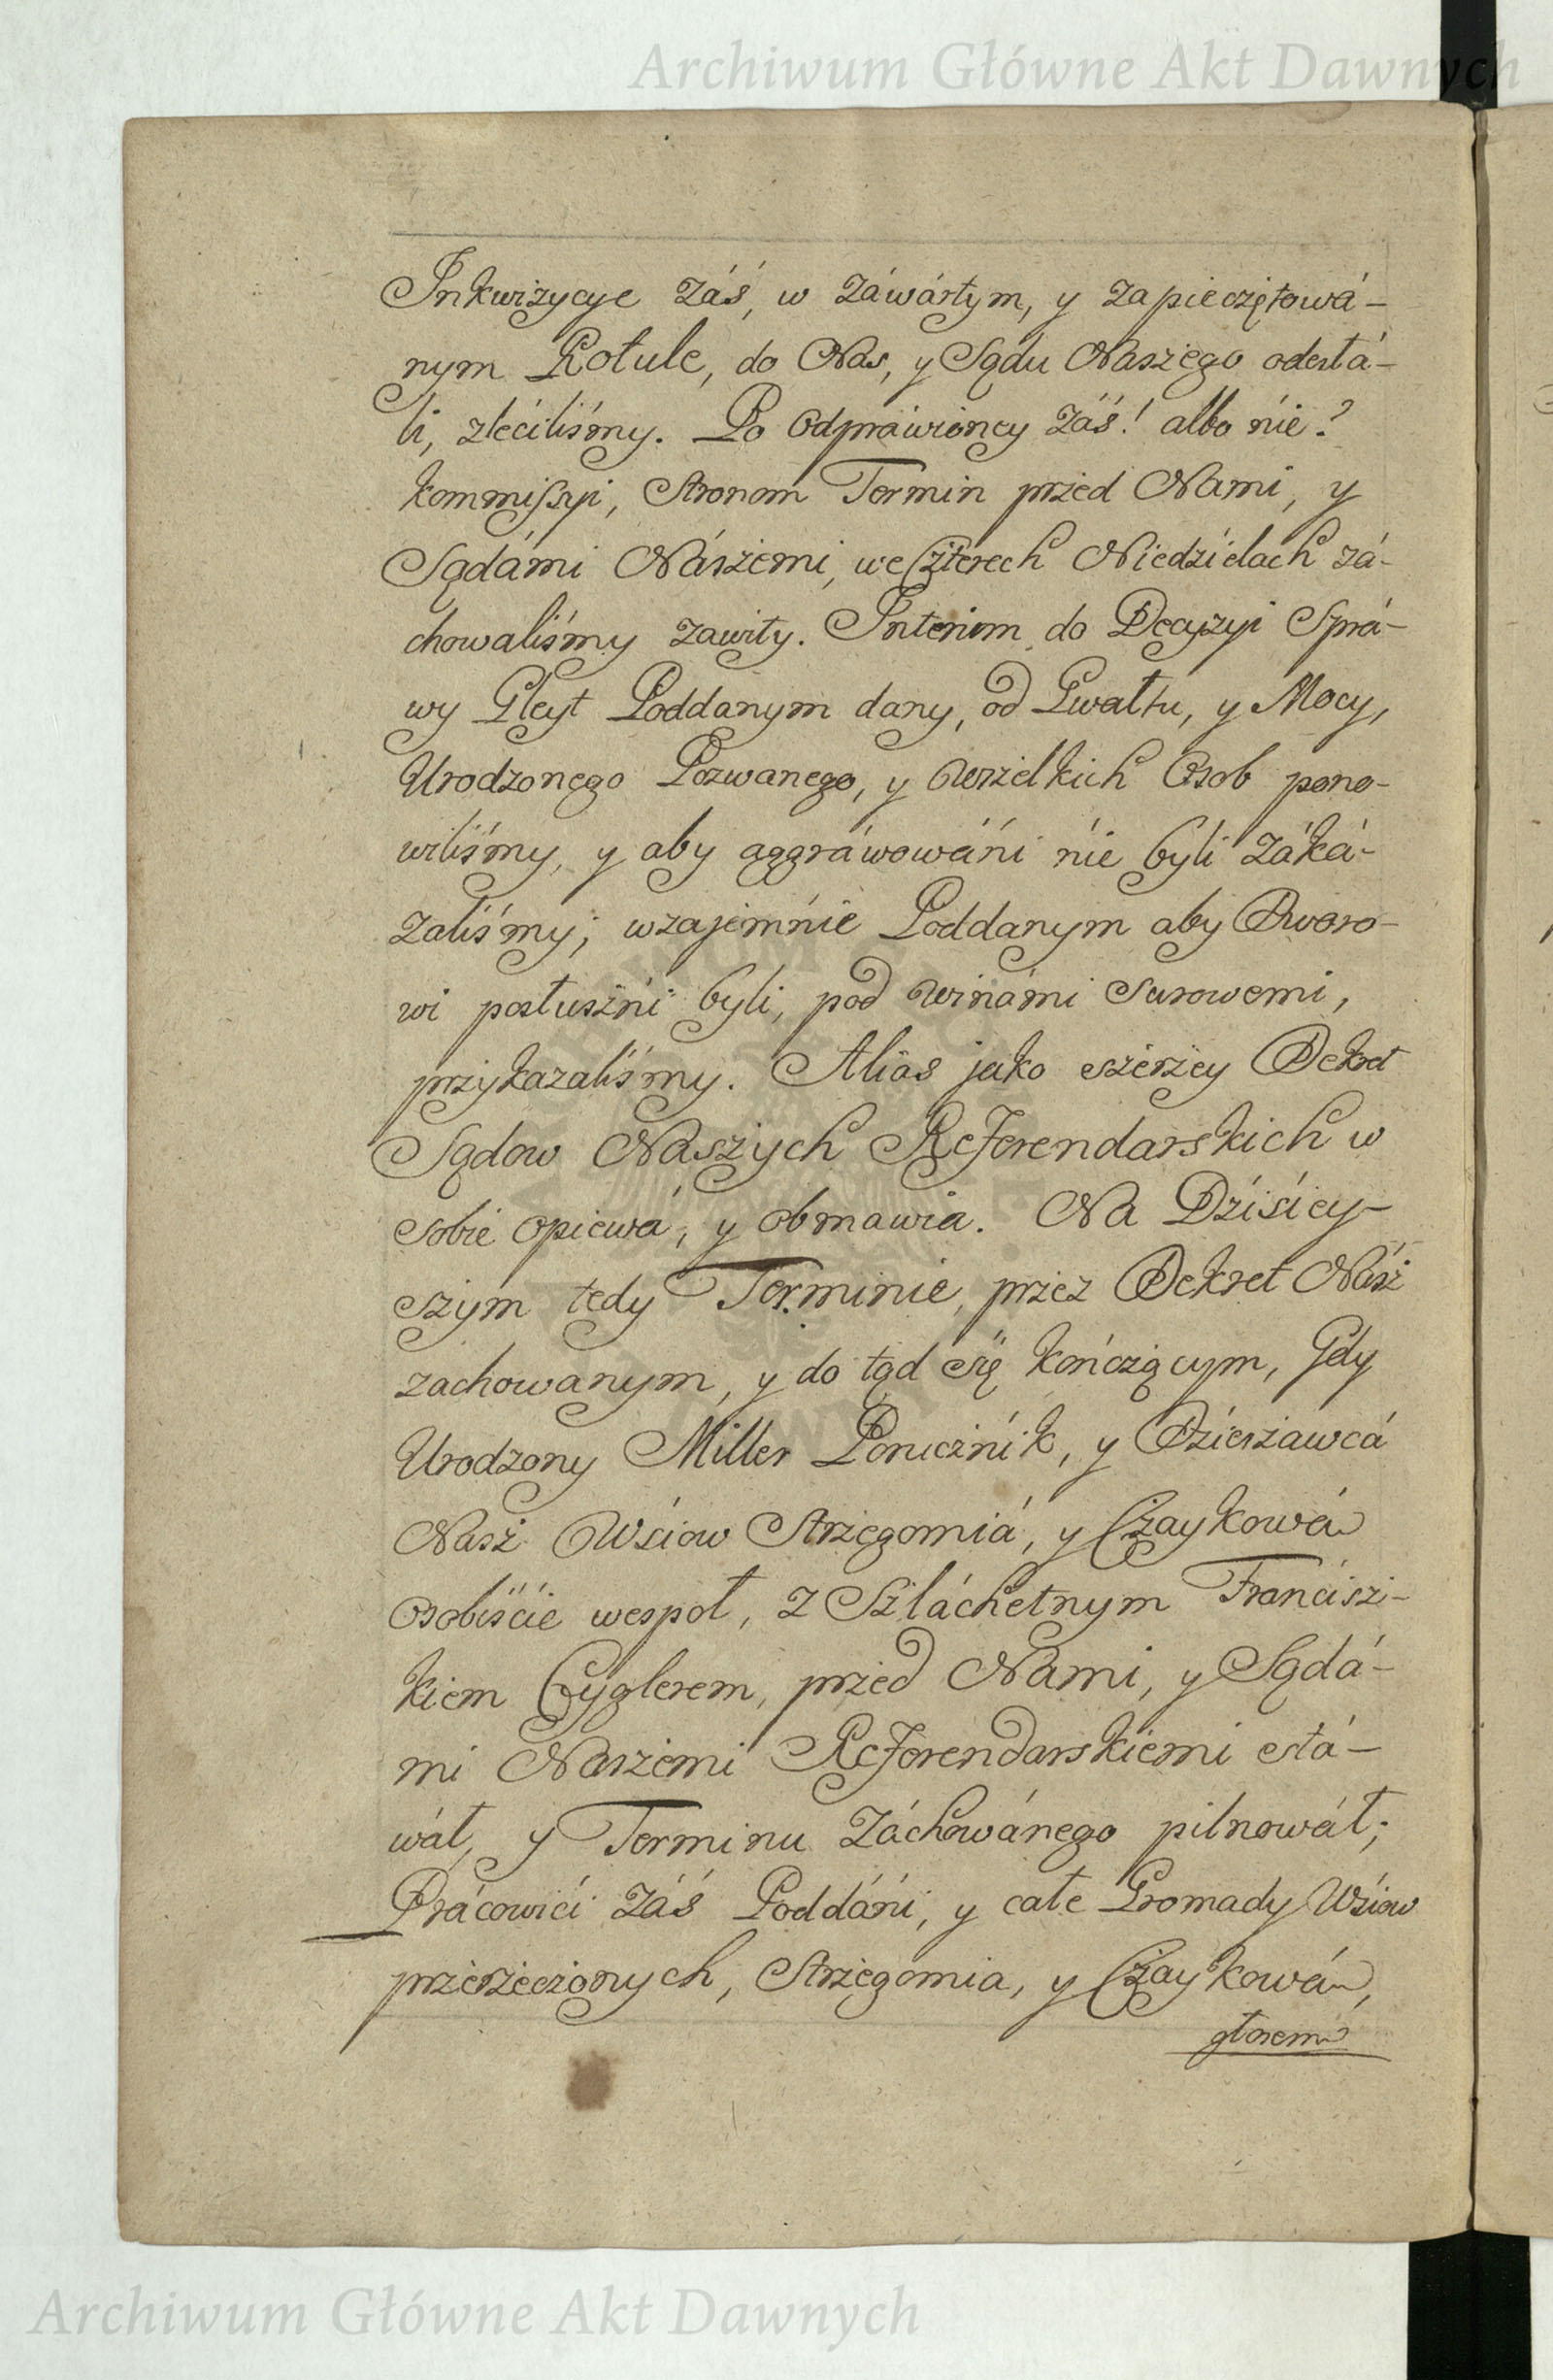 Archiwum Główne Akt Dawnych
Inkwizycye záś, w záwártym, y zapieczętowá-
nym Rotule, do Nas, y Sądu Naszego odesłá-
li, zleciliśmy. Po odpráwioney záś! albo nie?
kommissyi, Stronom Termin przed Nami, y
Sądámi Nászemi, we Czterech Niedzielach zá-
chowaliśmy zawity. Interim do Decyzyi Sprá-
wy Gleyt Poddanym dany, od Gwałtu, y Mocy,
Urodzonego Pozwanego, y wszelkich Osob pono-
wiliśmy, y aby aggráwowáni nie byli záká-
zaliśmy; wzajemnie Poddanym aby Dworo-
wi posłuszni byli, pod winámi surowemi,
przykazaliśmy. Alias jako szerzey Dekret
Sądow Naszych Referendarskich w
sobie opiewá, y obmawia. Na Dzisiey-
szym tedy Terminie, przez Dekret Nász
zachowanym, y do tąd się kończącym, Gdy
Urodzony Miller Porucznik, y Dzierzawcá
Nasz Wsiow Strzegomiá, y Czaykowá
osobiście wespoł, z Szláchetnym Francisz-
kiem Cyglerem, przed Nami, y Sądá-
mi Naszemi Referendarskiemi stá-
wáł, y Terminu Záchowánego pilnowáł;
Prácowici záś Poddáni, y całe Gromady Wsiow
przerzeczonych, Strzegomia, y Czaykowá,
głosem
Archiwum Główne Akt Dawnych